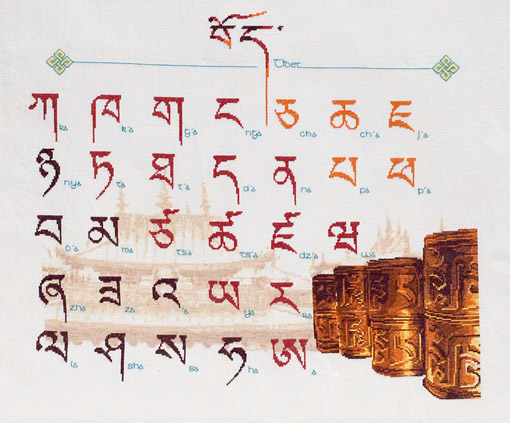 བོད་ Tibet
ཀ ka ཁ k'a ག g'a ང nga ཅ cha ཆ ch'a ཇ j'a
ཉ nya ཏ ta ཐ t'a ད d'a ན na པ pa ཕ p'a
བ b'a མ ma ཙ tsa ཚ ts'a ཛ dz'a ཝ wa
ཞ zha ཟ za འ 'a ཡ ya ར ra
ལ la ཤ sha ས sa ཧ ha ཨ a